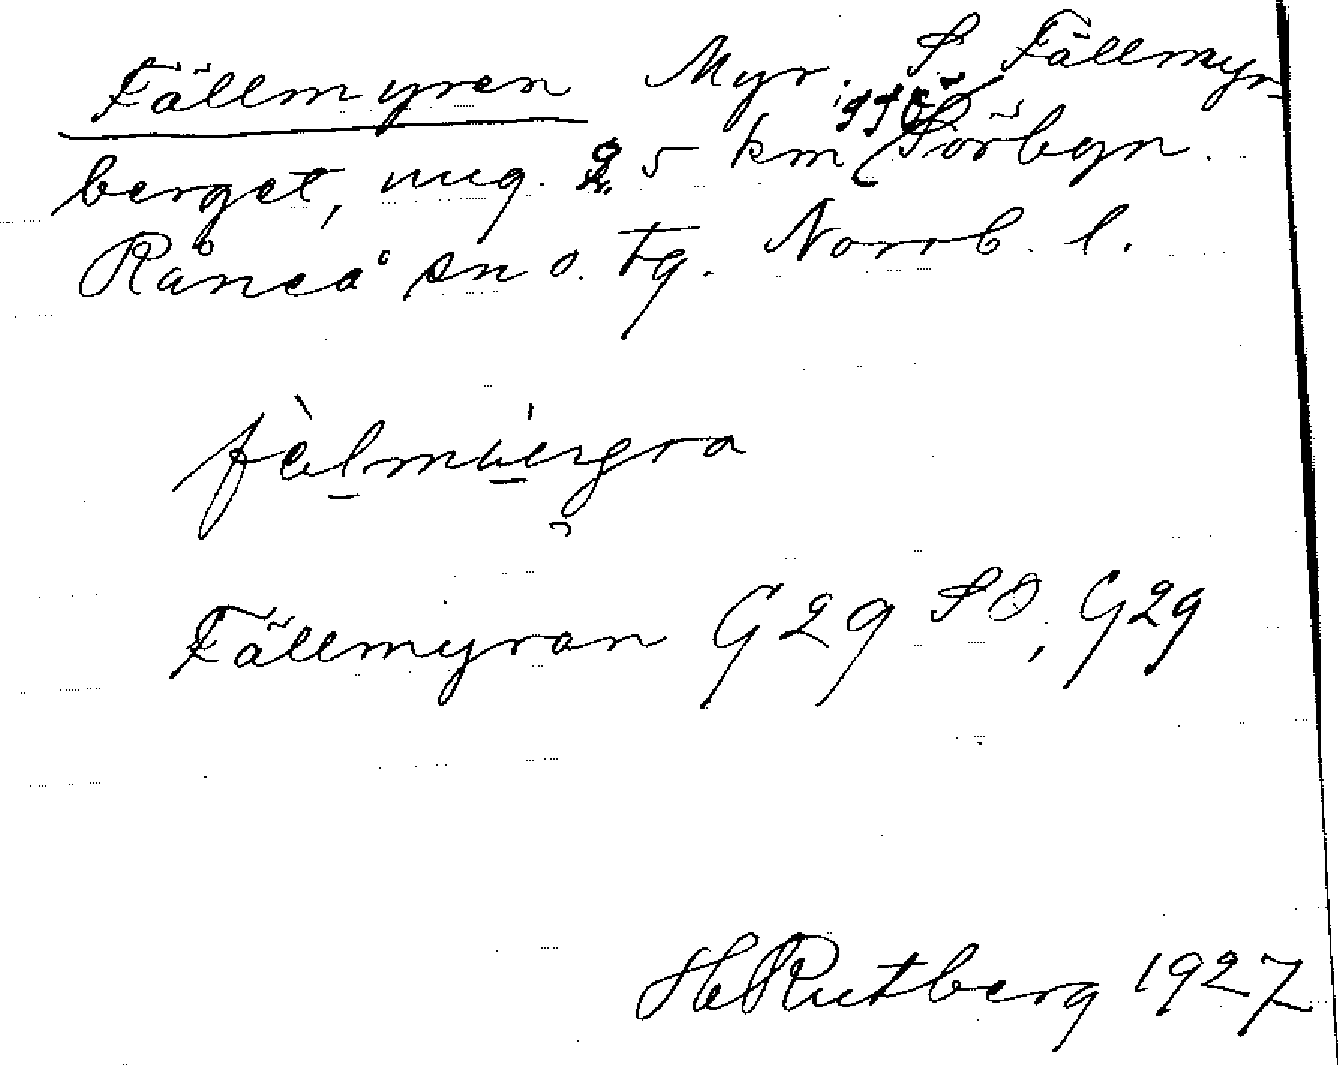 Fällmyren Myr. S Fällmyr-
berget, ung. 2,5 km SSO Sörbyn.
Råneå sn o. tg. Norrb. l.
Fällmyran G29 SO, G29
H Rutberg 1927